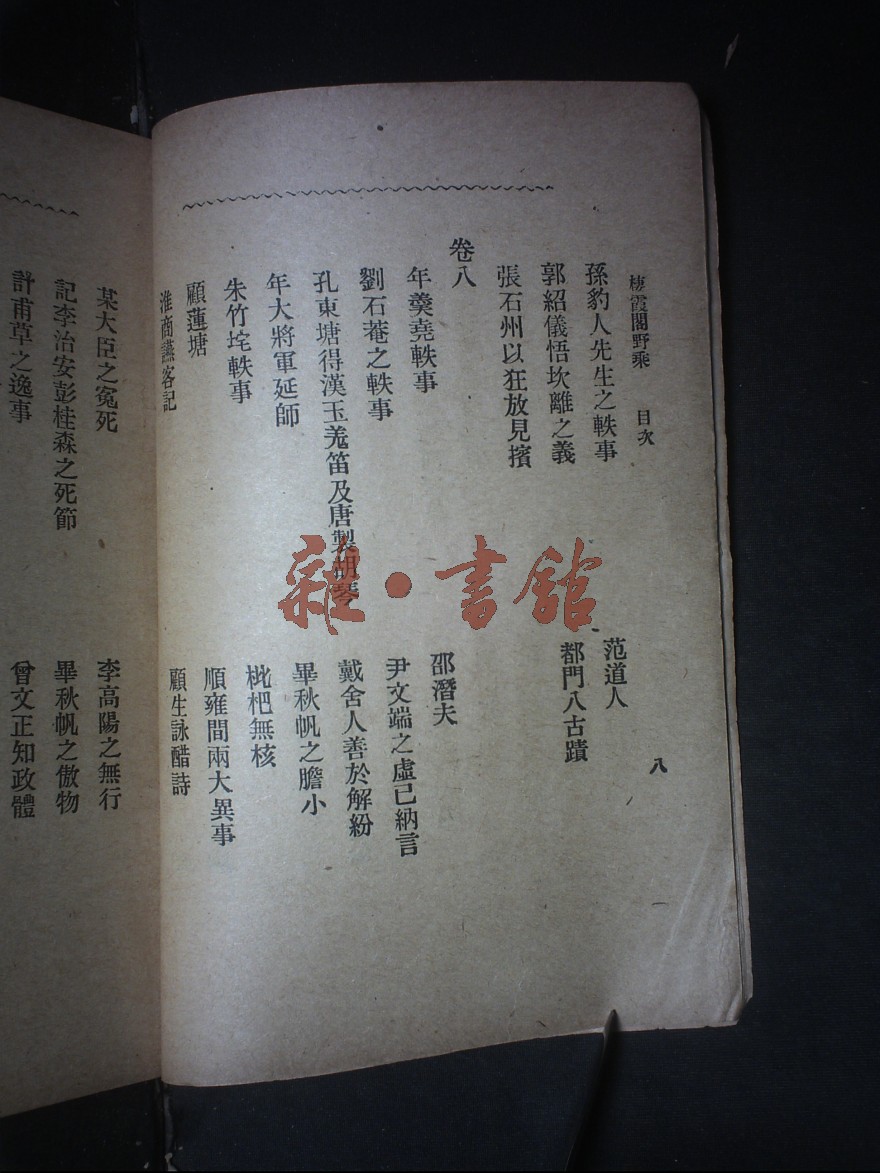 棲霞閣野乘 目次 八
孫豹人先生之軼事 范道人
郭紹儀悟坎離之義 都門八古蹟
張石州以狂放見擯
卷八
年羹堯軼事 邵潛夫
劉石菴之軼事 尹文端之虛已納言
孔東塘得漢玉羌笛及唐製胡琴 戴舍人善於解紛
年大將軍延師 畢秋帆之膽小
朱竹垞軼事 枇杷無核
顧蓮塘 順雍間兩大異事
淮商讌客記 顧生詠醋詩
某大臣之冤死 李高陽之無行
記李治安彭桂森之死節 畢秋帆之傲物
計甫草之逸事 曾文正知政體
雜·書館